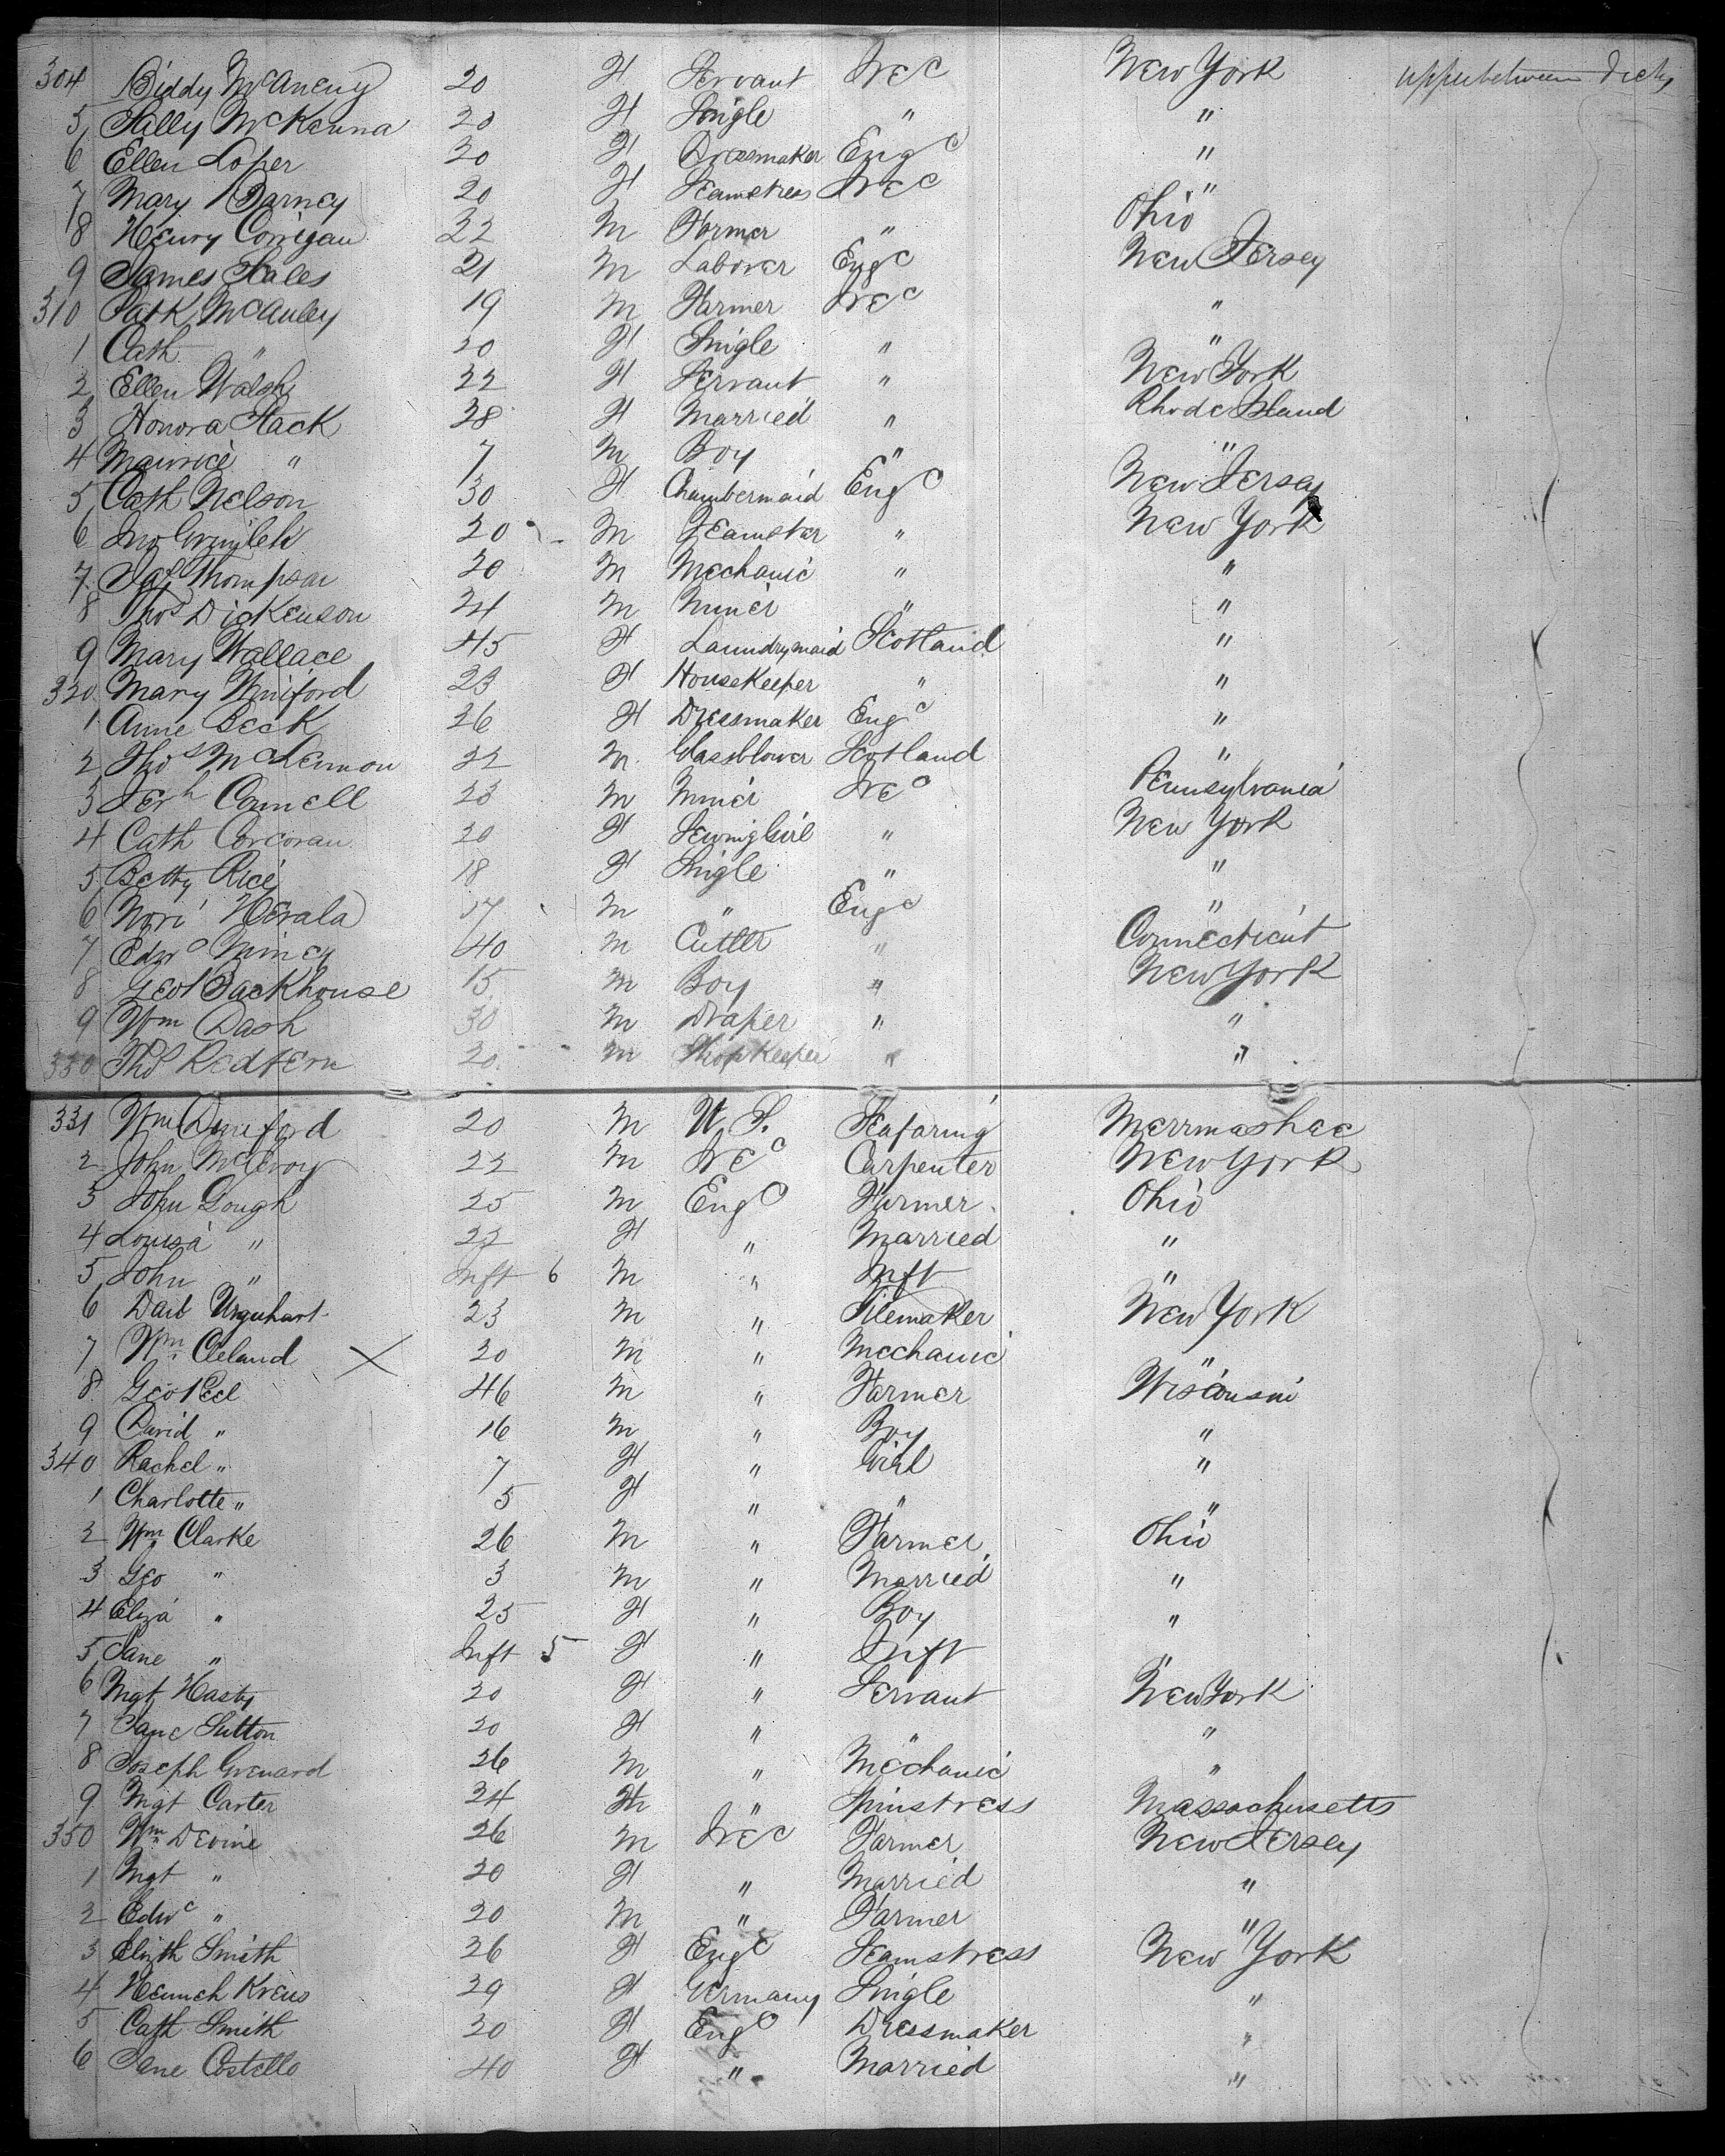 304 Biddy McAneny 20 F Servant Ired New York upper between decks
5 Sally McKenna 20 F Single " "
6 Ellen Loper 30 F Dressmaker Engd "
7 Mary Barney 20 F Seamstress Ired "
8 Henry Corrigan 22 M Farmer " Ohio
9 James Hales 21 M Laborer Engd New Jersey
310 Patk McAuley 19 M Farmer Ired "
1 Cath " 20 F Single " "
2 Ellen Walsh 22 F Servant " New York
3 Honora Stack 28 F Married " Rhode Island
4 Maurice " 7 M Boy " "
5 Cath Nelson 30 F Chambermaid Engd New Jersey
6 Jno 20 M Teamster " New York
7 Jas Thompson 20 M Mechanic " "
8 Thos Dickenson 24 M Miner " "
9 Mary Wallace 45 F Laundrymaid Scotland "
320 Mary Winiford 23 F Housekeeper " "
1 Anne Beck 26 F Dressmaker Engd "
2 Thos McLennon 22 M Glassblower Scotland "
3 Jerh Connell 23 M Miner Ired Pennsylvania
4 Cath Corcoran 20 F Sewing Girl " New York
5 Betty Rice 18 F Single " "
6 17 M " Engd "
7 Edwd 40 M Cutler " Connecticut
8 Geo Backhouse 15 M Boy " New York
9 Wm Dash 30 M Draper " "
330 Thos Redfern 20 M Shopkeeper " "
331 Wm Duniford 20 M U.S. Seafaring Merrmashee
2 John McEvoy 22 M Ired Carpenter New York
3 John Gough 25 M Engd Farmer Ohio
4 Louisa " 22 F " Married "
5 John " Inft 6 M " Inft "
6 David Urquhart 23 M " Filemaker New York
7 Wm Cleland X 20 M " Mechanic "
8 Geo Peel 46 M " Farmer Wisconsin
9 David " 16 M " Boy "
340 Rachel " 7 F " Girl "
1 Charlotte " 5 F " " "
2 Wm Clarke 26 M " Farmer Ohio
3 Geo " 3 M " Married "
4 Eliza " 25 F " Boy "
5 Jane " Inft 5 F " Inft "
6 Mgt Hasty 20 F " Servant New York
7 Jane Sutton 20 F " " "
8 Joseph Grenard 26 M " Mechanic "
9 Mgt Carter 24 F " Spinstress Massachusetts
350 Wm Devine 26 M Ired Farmer New Jersey
1 Mgt " 20 F " Married "
2 Edwd " 20 M " Farmer "
3 Elizth Smith 26 F Engd Seamstress New York
4 Heinrich Kreus 29 F Germany Single "
5 Cath Smith 20 F Engd Dressmaker "
6 Jane Costello 40 F " Married "